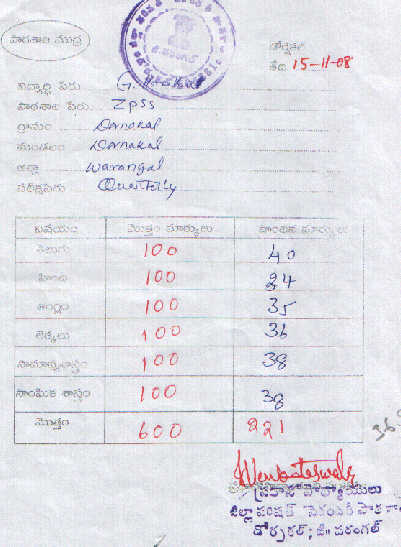 పాఠశాల ముద్ర
తేది 15-11-08
విద్యార్థి పేరు G.
పాఠశాల పేరు Zpss
గ్రామం Dornakal
మండలం Dornakal
జిల్లా Warangal
పరీక్షపేరు Quarterly
విషయం మొత్తం మార్కులు పొందిన మార్కులు
తెలుగు 100 40
హింది 100 34
ఆంగ్లం 100 35
లెక్కలు 100 36
సామాన్యశాస్త్రం 100 38
సాంఘిక శాస్త్రం 100 38
మొత్తం 600 221
Venkateswarlu
ప్రధానోపాధ్యాయులు
జిల్లా పరిషత్ సెకండరీ పాఠశాల
డోర్నకల్, జి॥ వరంగల్